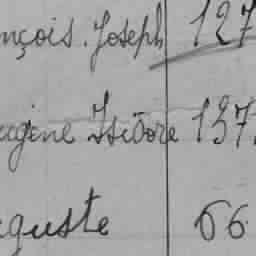 nçois Joseph 127
ugène Isidore 137.
guste 66